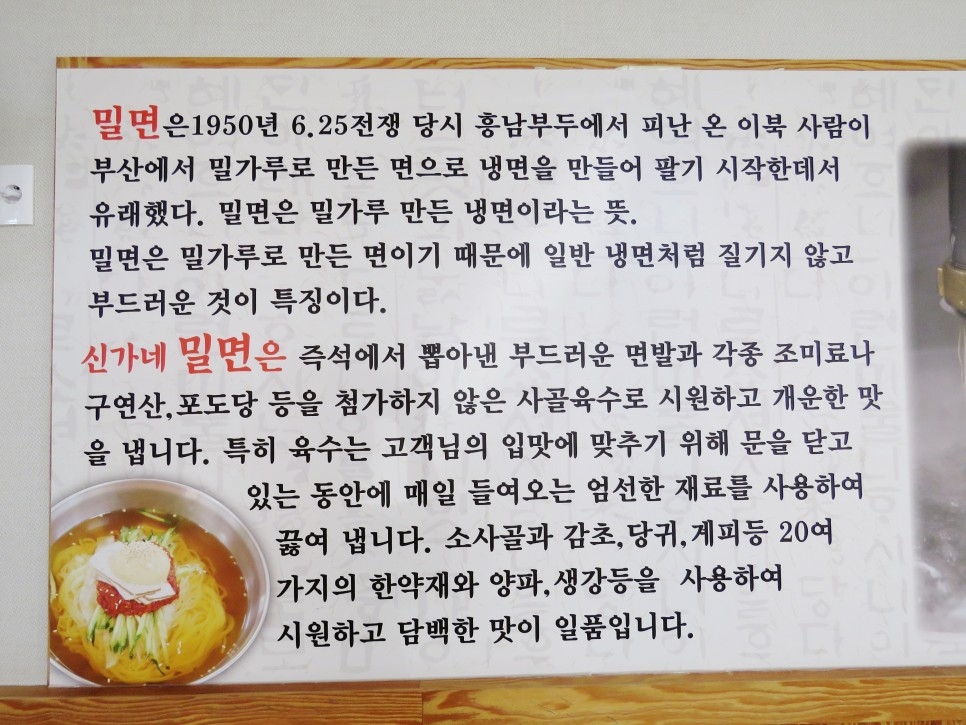 밀면은1950년 6.25전쟁 당시 흥남부두에서 피난 온 이북 사람이
부산에서 밀가루로 만든 면으로 냉면을 만들어 팔기 시작한데서
유래했다. 밀면은 밀가루 만든 냉면이라는 뜻.
밀면은 밀가루로 만든 면이기 때문에 일반 냉면처럼 질기지 않고
부드러운 것이 특징이다.
신가네 밀면은 즉석에서 뽑아낸 부드러운 면발과 각종 조미료나
구연산,포도당 등을 첨가하지 않은 사골육수로 시원하고 개운한 맛
을 냅니다. 특히 육수는 고객님의 입맛에 맞추기 위해 문을 닫고
있는 동안에 매일 들여오는 엄선한 재료를 사용하여
끓여 냅니다. 소사골과 감초,당귀,계피등 20여
가지의 한약재와 양파,생강등을 사용하여
시원하고 담백한 맛이 일품입니다.